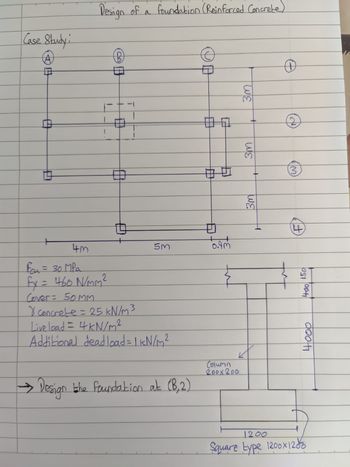 Design of a foundation (Reinforced Concrete)
Case Study:
A B C
1
3m
2
3m
3
3m
4
4m 5m 0.9m
Fcu = 30 MPa
Fy = 460 N/mm²
Cover = 50 mm
γ concrete = 25 kN/m³
Live load = 4 kN/m²
Additional dead load = 1 kN/m²
→ Design the foundation at (B,2)
150
400
4.000
Column
200x200
1200
Square type 1200x1200